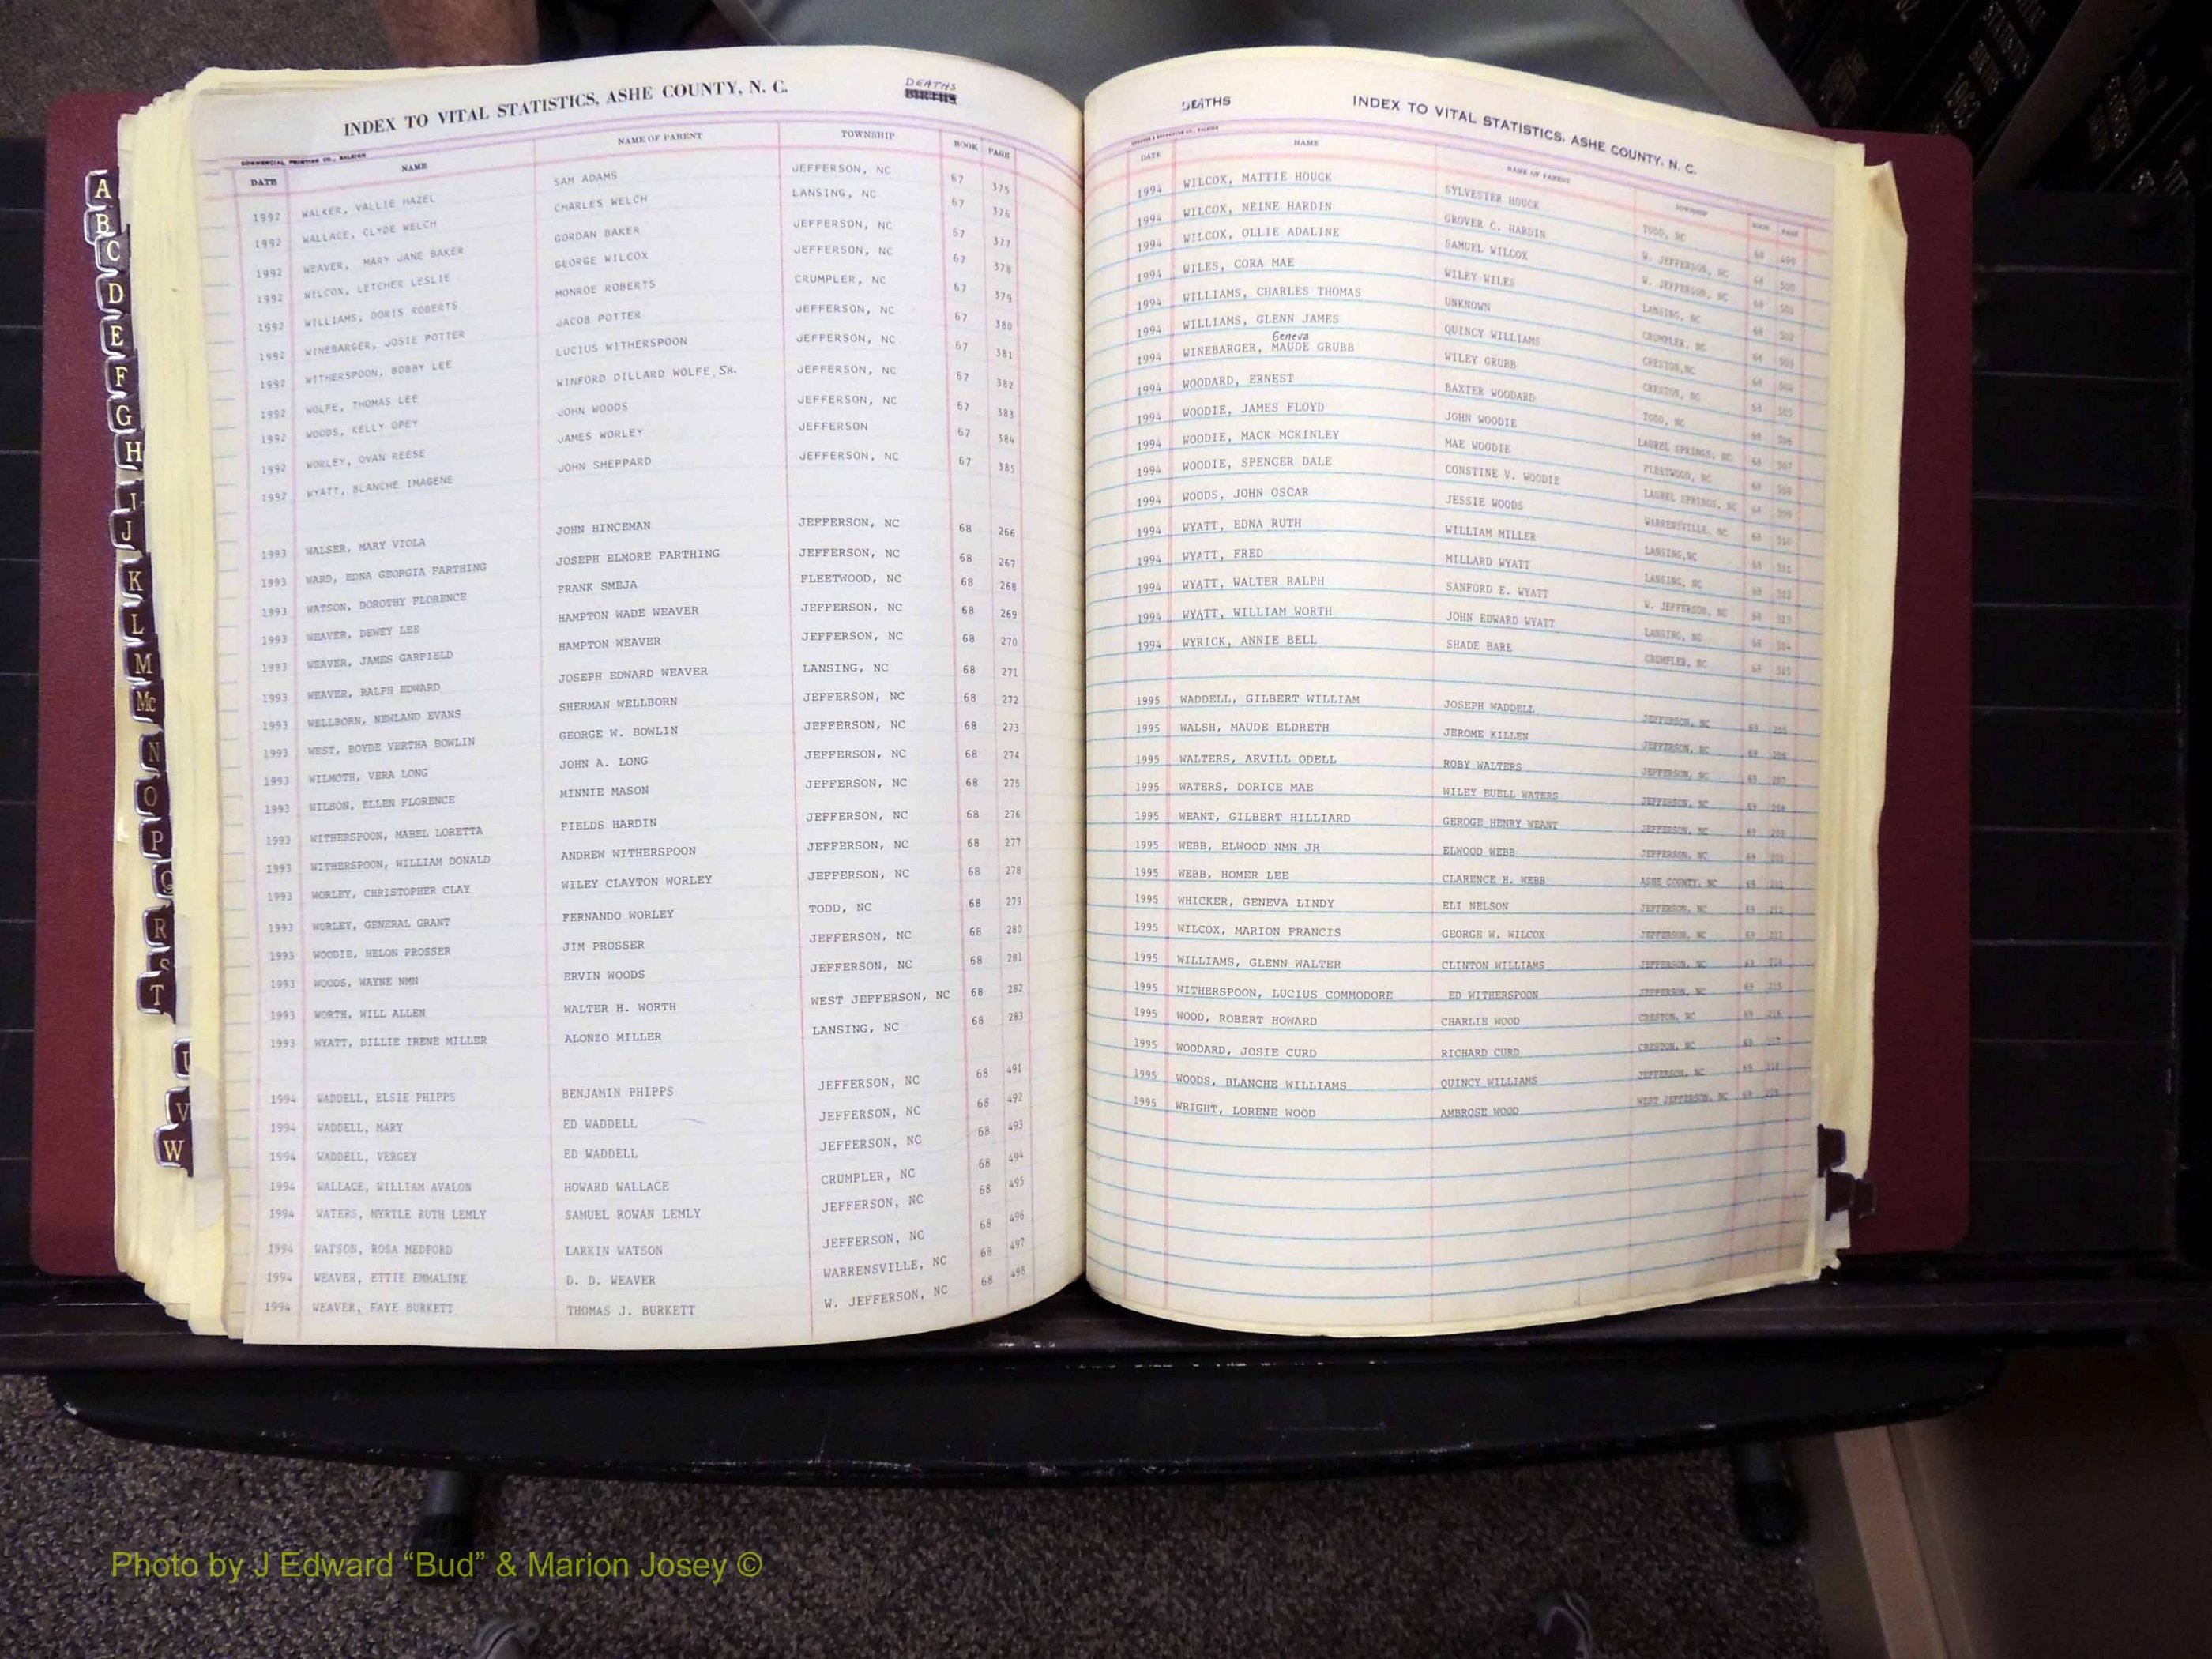 DEATHS
BIRTHS
INDEX TO VITAL STATISTICS, ASHE COUNTY, N. C.
COMMERCIAL PRINTING CO., RALEIGH
DATE NAME NAME OF PARENT TOWNSHIP BOOK PAGE
1992 WALKER, VALLIE HAZEL SAM ADAMS JEFFERSON, NC 67 375
1992 WALLACE, CLYDE WELCH CHARLES WELCH LANSING, NC 67 376
1992 WEAVER, MARY JANE BAKER GORDAN BAKER JEFFERSON, NC 67 377
1992 WILCOX, LETCHER LESLIE GEORGE WILCOX JEFFERSON, NC 67 378
1992 WILLIAMS, DORIS ROBERTS MONROE ROBERTS CRUMPLER, NC 67 379
1992 WINEBARGER, JOSIE POTTER JACOB POTTER JEFFERSON, NC 67 380
1992 WITHERSPOON, BOBBY LEE LUCIUS WITHERSPOON JEFFERSON, NC 67 381
1992 WOLFE, THOMAS LEE WINFORD DILLARD WOLFE, SR. JEFFERSON, NC 67 382
1992 WOODS, KELLY OPEY JOHN WOODS JEFFERSON, NC 67 383
1992 WORLEY, OVAN REESE JAMES WORLEY JEFFERSON 67 384
1992 WYATT, BLANCHE IMAGENE JOHN SHEPPARD JEFFERSON, NC 67 385
1993 WALSER, MARY VIOLA JOHN HINCEMAN JEFFERSON, NC 68 266
1993 WARD, EDNA GEORGIA FARTHING JOSEPH ELMORE FARTHING JEFFERSON, NC 68 267
1993 WATSON, DOROTHY FLORENCE FRANK SMEJA FLEETWOOD, NC 68 268
1993 WEAVER, DEWEY LEE HAMPTON WADE WEAVER JEFFERSON, NC 68 269
1993 WEAVER, JAMES GARFIELD HAMPTON WEAVER JEFFERSON, NC 68 270
1993 WEAVER, RALPH EDWARD JOSEPH EDWARD WEAVER LANSING, NC 68 271
1993 WELLBORN, NEWLAND EVANS SHERMAN WELLBORN JEFFERSON, NC 68 272
1993 WEST, BOYDE VERTHA BOWLIN GEORGE W. BOWLIN JEFFERSON, NC 68 273
1993 WILMOTH, VERA LONG JOHN A. LONG JEFFERSON, NC 68 274
1993 WILSON, ELLEN FLORENCE MINNIE MASON JEFFERSON, NC 68 275
1993 WITHERSPOON, MABEL LORETTA FIELDS HARDIN JEFFERSON, NC 68 276
1993 WITHERSPOON, WILLIAM DONALD ANDREW WITHERSPOON JEFFERSON, NC 68 277
1993 WORLEY, CHRISTOPHER CLAY WILEY CLAYTON WORLEY JEFFERSON, NC 68 278
1993 WORLEY, GENERAL GRANT FERNANDO WORLEY TODD, NC 68 279
1993 WOODIE, HELON PROSSER JIM PROSSER JEFFERSON, NC 68 280
1993 WOODS, WAYNE NMN ERVIN WOODS JEFFERSON, NC 68 281
1993 WORTH, WILL ALLEN WALTER H. WORTH WEST JEFFERSON, NC 68 282
1993 WYATT, DILLIE IRENE MILLER ALONZO MILLER LANSING, NC 68 283
1994 WADDELL, ELSIE PHIPPS BENJAMIN PHIPPS JEFFERSON, NC 68 491
1994 WADDELL, MARY ED WADDELL JEFFERSON, NC 68 492
1994 WADDELL, VERGEY ED WADDELL JEFFERSON, NC 68 493
1994 WALLACE, WILLIAM AVALON HOWARD WALLACE CRUMPLER, NC 68 494
1994 WATERS, MYRTLE RUTH LEMLY SAMUEL ROWAN LEMLY JEFFERSON, NC 68 495
1994 WATSON, ROSA MEDFORD LARKIN WATSON JEFFERSON, NC 68 496
1994 WEAVER, ETTIE EMMALINE D. D. WEAVER WARRENSVILLE, NC 68 497
1994 WEAVER, FAYE BURKETT THOMAS J. BURKETT W. JEFFERSON, NC 68 498
A
B
C
D
E
F
G
H
I
J
K
L
M
Mc
N
O
P
Q
R
S
T
U
V
W
DEATHS INDEX TO VITAL STATISTICS, ASHE COUNTY, N. C.
DATE NAME NAME OF PARENT TOWNSHIP BOOK PAGE
1994 WILCOX, MATTIE HOUCK SYLVESTER HOUCK TODD, NC 68 499
1994 WILCOX, NEINE HARDIN GROVER C. HARDIN W. JEFFERSON, NC 68 500
1994 WILCOX, OLLIE ADALINE SAMUEL WILCOX W. JEFFERSON, NC 68 501
1994 WILES, CORA MAE WILEY WILES LANSING, NC 68 502
1994 WILLIAMS, CHARLES THOMAS UNKNOWN CRUMPLER, NC 68 503
1994 WILLIAMS, GLENN JAMES QUINCY WILLIAMS CRESTON,NC 68 504
Geneva
1994 WINEBARGER, MAUDE GRUBB WILEY GRUBB CRESTON, NC 68 505
1994 WOODARD, ERNEST BAXTER WOODARD TODD, NC 68 506
1994 WOODIE, JAMES FLOYD JOHN WOODIE LAUREL SPRINGS, NC 68 507
1994 WOODIE, MACK MCKINLEY MAE WOODIE FLEETWOOD, NC 68 508
1994 WOODIE, SPENCER DALE CONSTINE V. WOODIE LAUREL SPRINGS, NC 68 509
1994 WOODS, JOHN OSCAR JESSIE WOODS WARRENSVILLE, NC 68 510
1994 WYATT, EDNA RUTH WILLIAM MILLER LANSING,NC 68 511
1994 WYATT, FRED MILLARD WYATT LANSING, NC 68 512
1994 WYATT, WALTER RALPH SANFORD E. WYATT W. JEFFERSON, NC 68 513
1994 WYATT, WILLIAM WORTH JOHN EDWARD WYATT LANSING, NC 68 514
1994 WYRICK, ANNIE BELL SHADE BARE CRUMPLER, NC 68 515
1995 WADDELL, GILBERT WILLIAM JOSEPH WADDELL JEFFERSON, NC 69
1995 WALSH, MAUDE ELDRETH JEROME KILLEN JEFFERSON, NC 69
1995 WALTERS, ARVILL ODELL ROBY WALTERS JEFFERSON, NC 69
1995 WATERS, DORICE MAE WILEY EUELL WATERS JEFFERSON, NC 69
1995 WEANT, GILBERT HILLIARD GEROGE HENRY WEANT JEFFERSON, NC 69
1995 WEBB, ELWOOD NMN JR ELWOOD WEBB JEFFERSON, NC 69
1995 WEBB, HOMER LEE CLARENCE H. WEBB ASHE COUNTY, NC 69
1995 WHICKER, GENEVA LINDY ELI NELSON JEFFERSON, NC 69
1995 WILCOX, MARION FRANCIS GEORGE W. WILCOX JEFFERSON, NC 69
1995 WILLIAMS, GLENN WALTER CLINTON WILLIAMS JEFFERSON, NC 69
1995 WITHERSPOON, LUCIUS COMMODORE ED WITHERSPOON JEFFERSON, NC 69
1995 WOOD, ROBERT HOWARD CHARLIE WOOD CRESTON, NC 69
1995 WOODARD, JOSIE CURD RICHARD CURD CRESTON, NC 69
1995 WOODS, BLANCHE WILLIAMS QUINCY WILLIAMS JEFFERSON, NC 69
1995 WRIGHT, LORENE WOOD AMBROSE WOOD WEST JEFFERSON, NC 69
Photo by J Edward “Bud” & Marion Josey ©